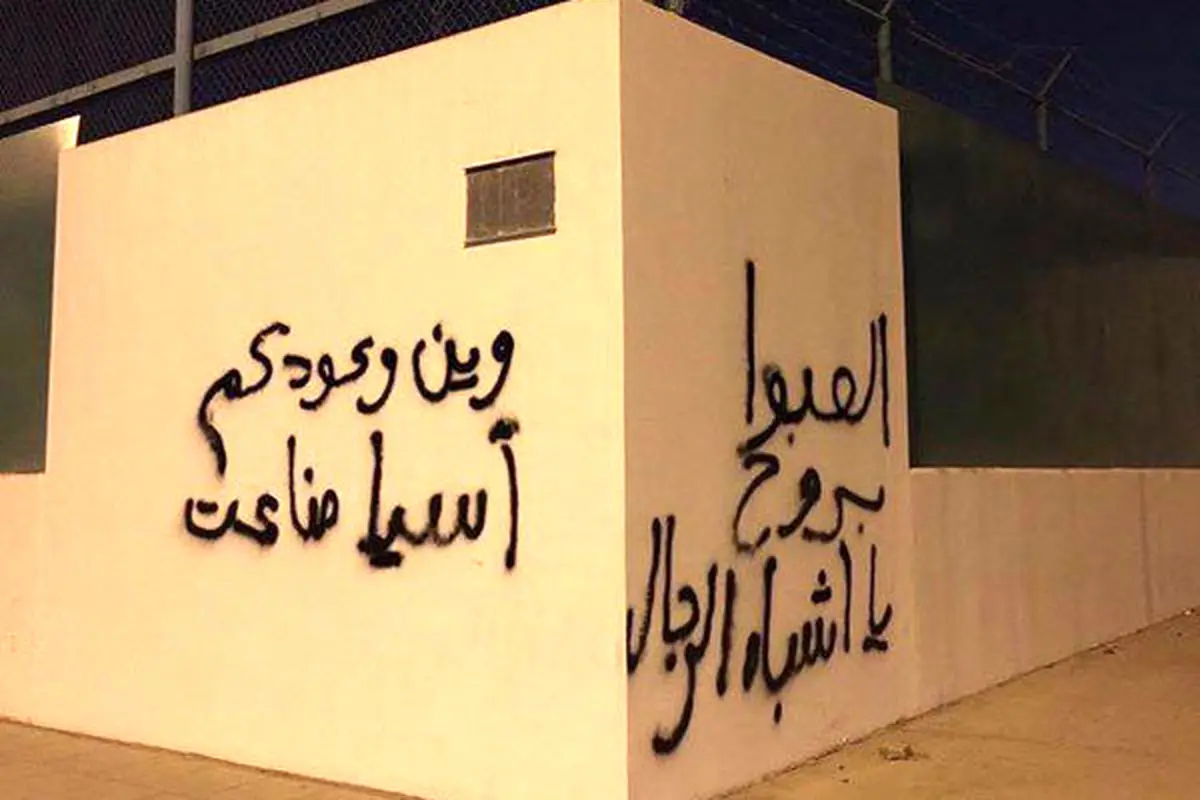 العبوا
بروح
يا اشباه الرجال
وين وعودكم
آسيا ضاعت